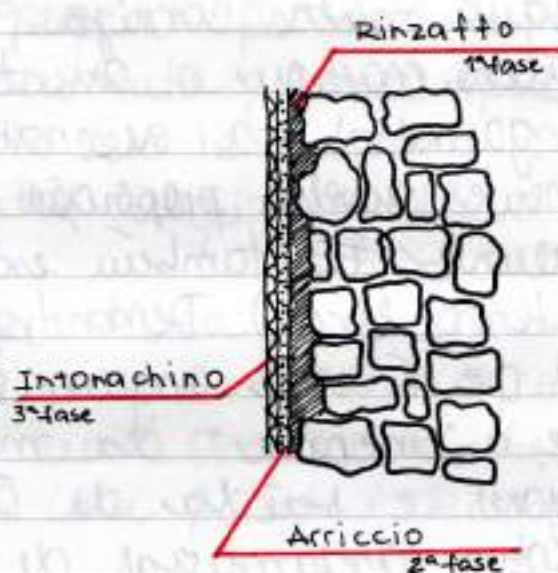 Rinzaffo
1ª fase
Intonachino
3ª fase
Arriccio
2ª fase